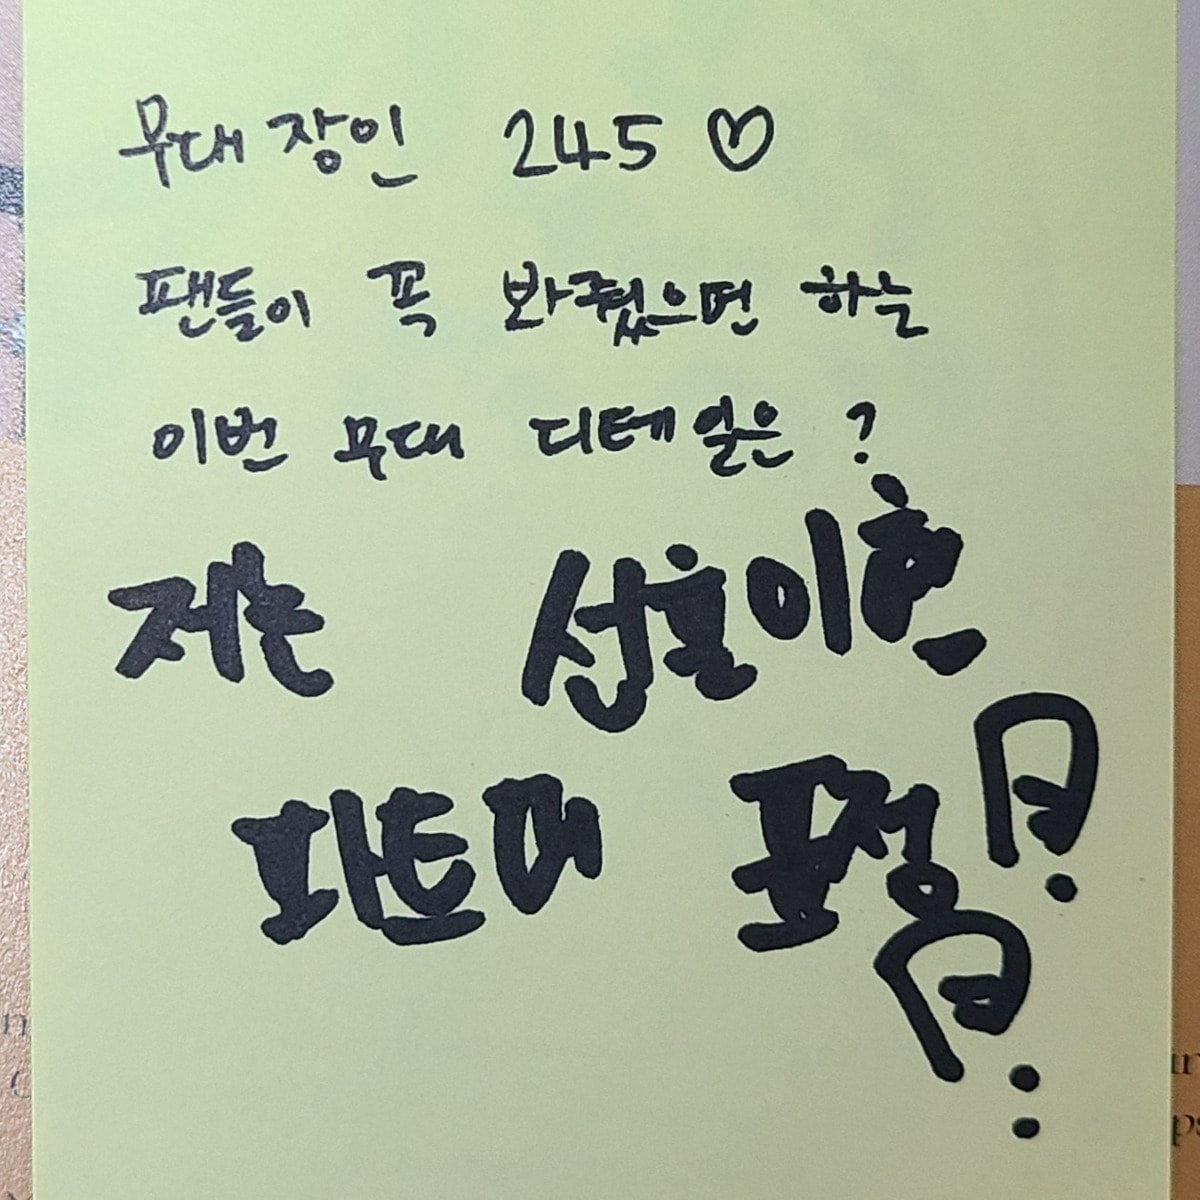 무대 장인 245 ♡
팬들이 꼭 봐줬으면 하는
이번 무대 디테일은 ?
저는 성호이한
파트 때 표정